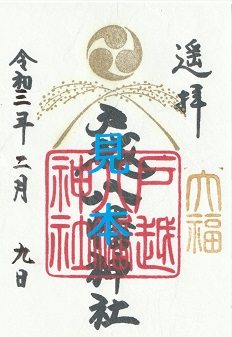 遥拝
大福
戸越八幡神社
戸越
八幡
神社
見本
令和三年二月九日